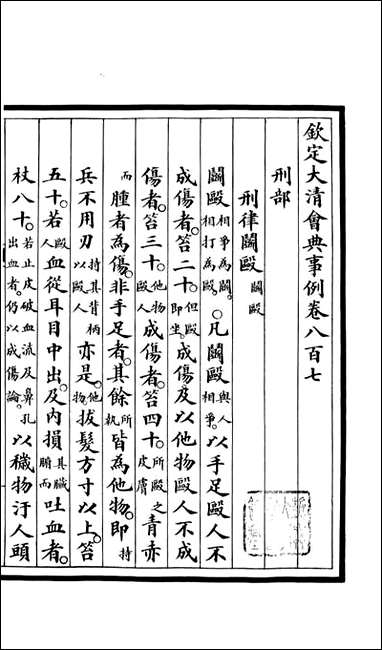 欽定大清會典事例卷八百七
刑部
刑律鬬毆 鬬毆
鬬毆相爭為鬬。相打為毆。○凡鬬毆與人相爭。以手足毆人不
成傷者。笞二十。但毆即坐。成傷及以他物毆人不成
傷者。笞三十。他物毆人成傷者。笞四十。所毆之皮膚青赤
而腫者為傷。非手足者。其餘所執皆為他物。即持
兵不用刃持其背柄以毆人亦是。他物。拔髮方寸以上。笞
五十。若毆人血從耳目中出。及內損其臟腑而吐血者。
杖八十。若止皮破血流及鼻孔出血者。仍以成傷論。以穢物汙人頭